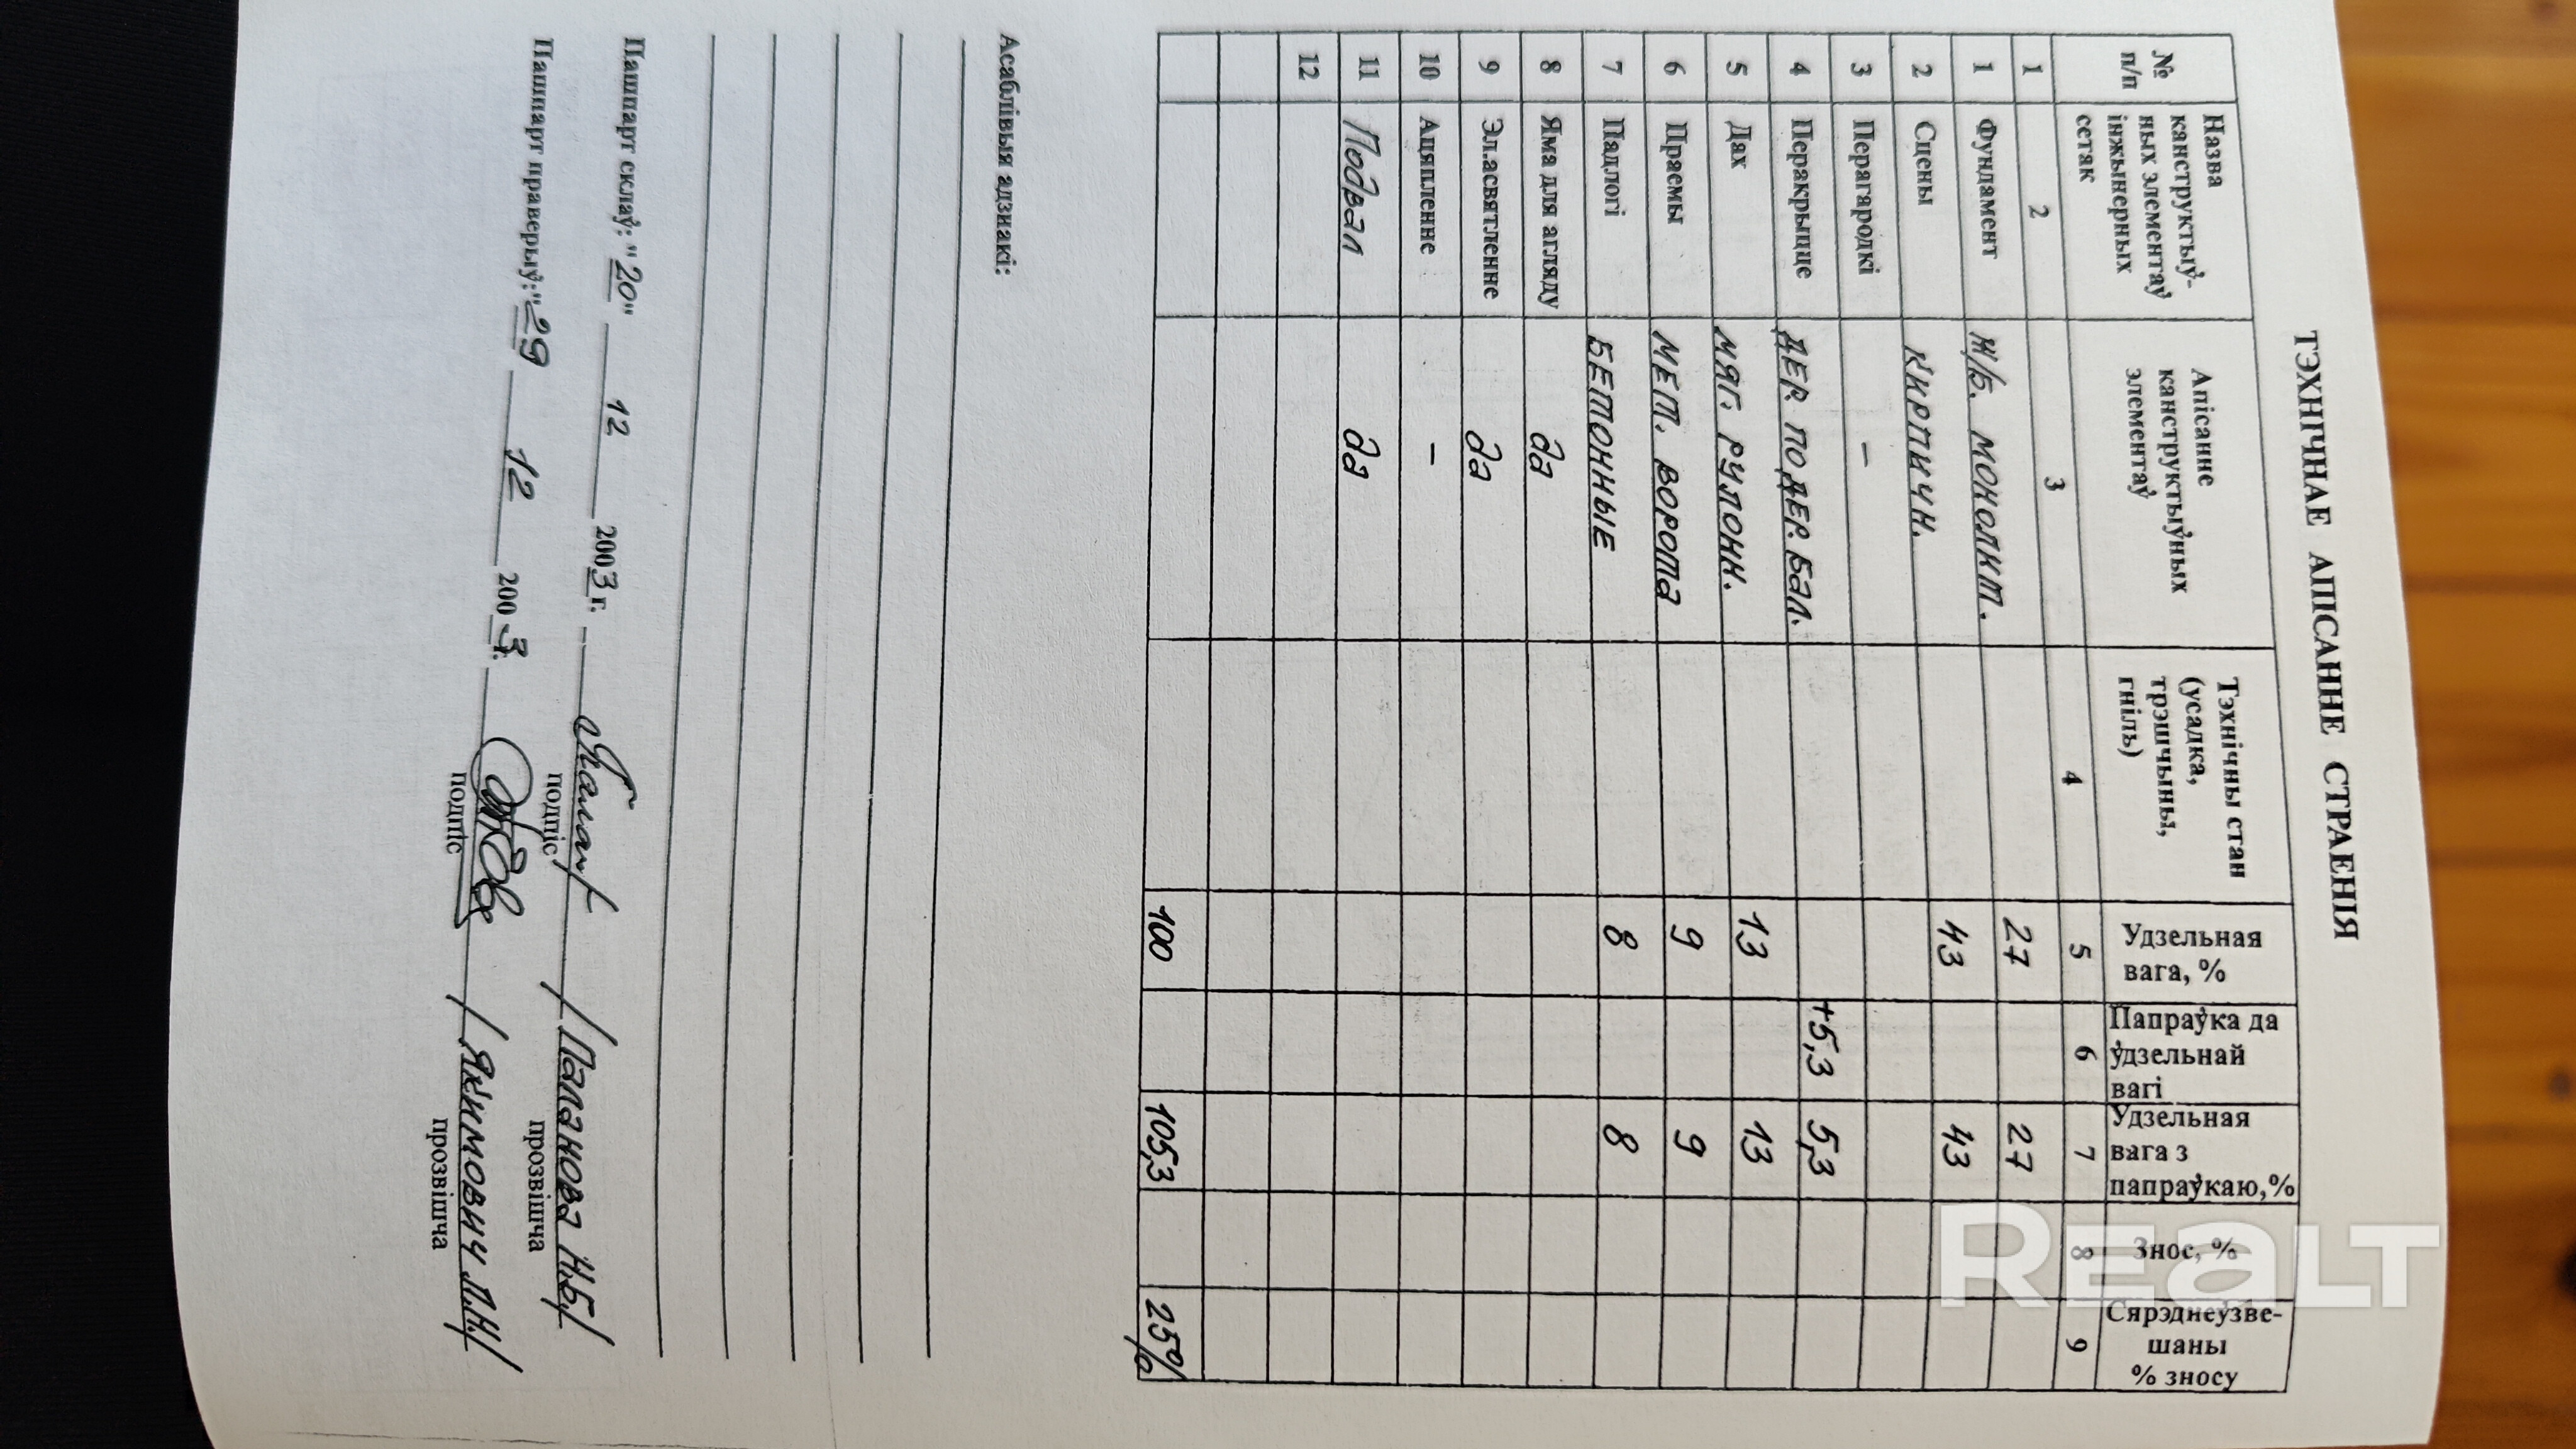 ТЭХНІЧНАЕ АПІСАННЕ СТРАЕННЯ
№ п/п
Назва канструктыў-
ных элементаў
інжынерных
сетак
Апісанне
канструктыўных
элементаў
Тэхнічны стан
(усадка,
трэшчыны,
гніль)
Удзельная
вага, %
Папраўка да
ўдзельнай
вагі
Удзельная
вага з
папраўкаю,%
Знос, %
Сярэднеўзве-
шаны
% зносу
1 2 3 4 5 6 7 8 9
1 Фундамент Ж/Б. МОНОЛИТ. 27 27
2 Сцены КИРПИЧН. 43 43
3 Перагародкі –
4 Перакрыцце ДЕР. ПО ДЕР. БАЛ. +5,3 5,3
5 Дах МЯГ. РУЛОНН. 13 13
6 Праемы МЕТ. ВОРОТА 9 9
7 Падлогі БЕТОННЫЕ 8 8
8 Яма для агляду да
9 Эл.асвятленне да
10 Ацяпленне –
11 Подвал да
12
100 105,3 25%
Асаблівыя адзнакі:
Пашпарт склаў: "20" 12 2003 г. /Паланова Н.Б./
подпіс прозвішча
Пашпарт праверыў: "29 12 2003 г. /Якимович Л.Н./
подпіс прозвішча
REALT